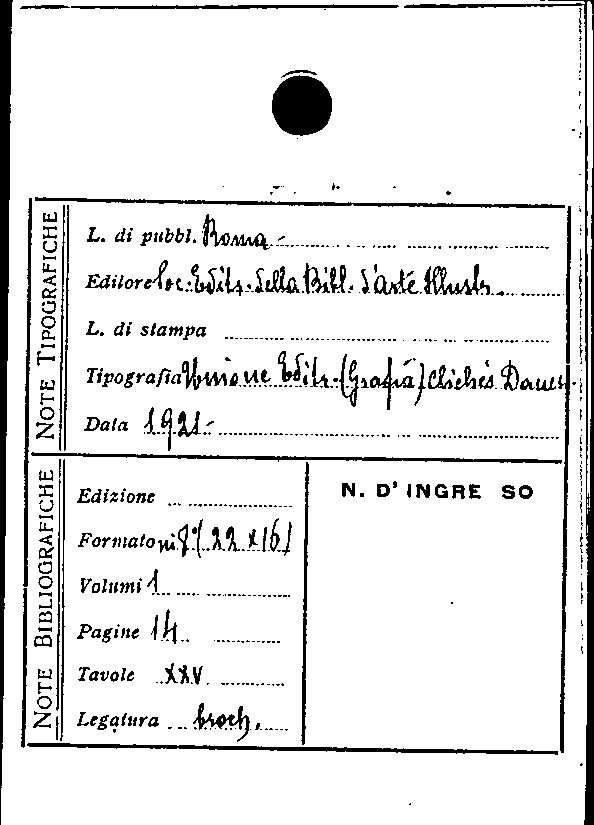 NOTE TIPOGRAFICHE
L. di pubbl. Roma -
Editore Soc. Edits. della Bibl. d'arte Illustr.
L. di stampa
Tipografia Unione Edit. (Grafia) Clichés Danesi.
Data 1921 -
NOTE BIBLIOGRAFICHE
Edizione
Formato in 8° (22 x 16)
Volumi 1
Pagine 14
Tavole XXV
Legatura broch.
N. D'INGRE SO